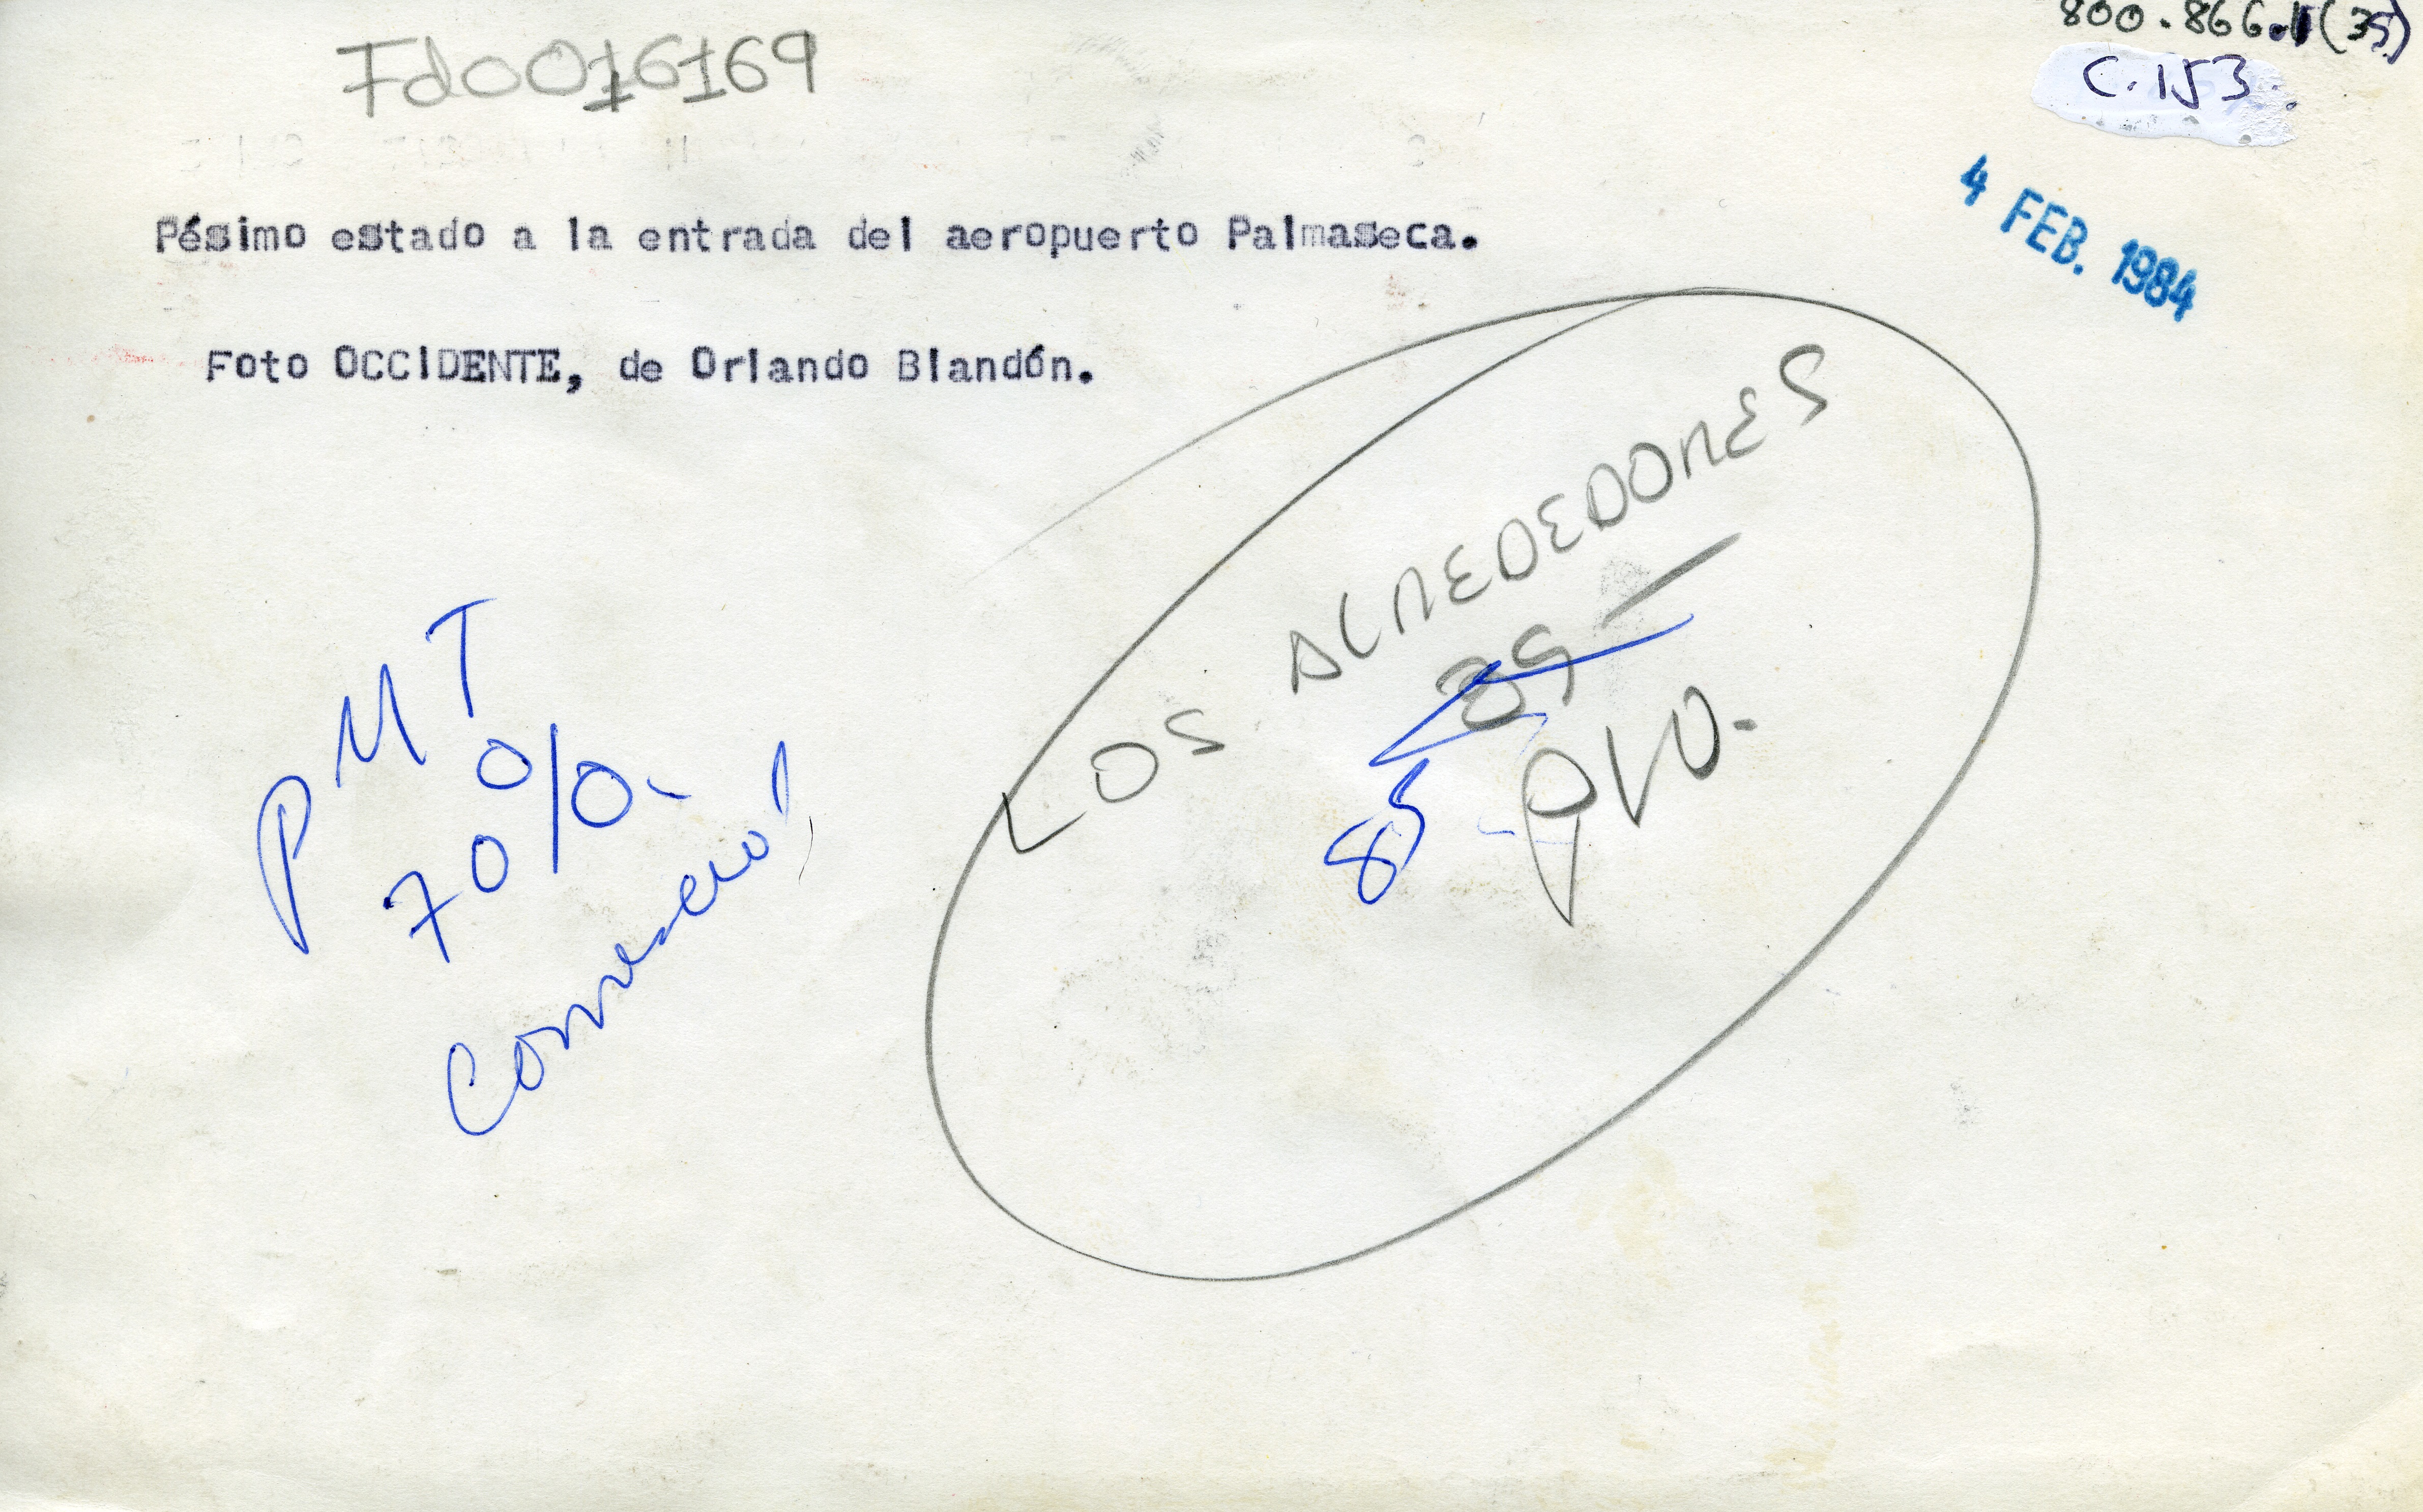 800.866.1(35)
Fd0016169
C.153.
4 FEB. 1984
Pésimo estado a la entrada del aeropuerto Palmaseca.
Foto OCCIDENTE, de Orlando Blandón.
LOS ALREDEDORES
85
PMT
70%
85